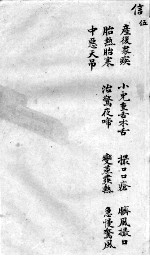 信
伍
產後衆疾 小兒重舌木舌 撮口口瘡 臍風撮口
胎熱胎寒 治驚夜啼 變蒸發熱 急慢驚風
中惡天吊